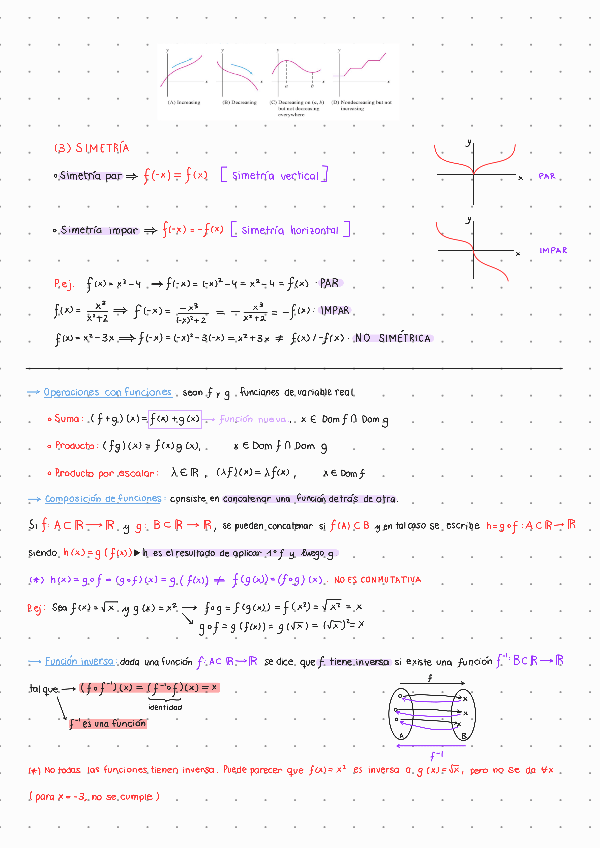 y y y y
x a b x x x
(A) Increasing (B) Decreasing (C) Decreasing on (a, b) (D) Nondecreasing but not
but not decreasing increasing
everywhere
(3) SIMETRÍA
y
x
PAR
∘ Simetría par ⇒ f(-x) = f(x) [ simetría vertical ]
y
x
IMPAR
∘ Simetría impar ⇒ f(-x) = -f(x) [ simetría horizontal ]
P.ej. f(x) = x²-4 → f(-x) = (-x)²-4 = x²-4 = f(x) · PAR
f(x) = x³/(x²+2) ⇒ f(-x) = -x³/((-x)²+2) = - x³/(x²+2) = -f(x) · IMPAR
f(x) = x²-3x ⇒ f(-x) = (-x)²-3(-x) = x²+3x ≠ f(x)/-f(x) · NO SIMÉTRICA
→ Operaciones con funciones. sean f y g funciones de variable real
∘ Suma: (f+g)(x) = f(x)+g(x) → función nueva . x ∈ Dom f ∩ Dom g
∘ Producto: (fg)(x) = f(x)g(x), x ∈ Dom f ∩ Dom g
∘ Producto por escalar: λ ∈ ℝ, (λf)(x) = λf(x), x ∈ Dom f
→ Composición de funciones: consiste en concatenar una función detrás de otra.
Si f: A⊂ℝ → ℝ, y g: B⊂ℝ → ℝ, se pueden concatenar si f(A)⊂B y en tal caso se escribe h=g∘f: A⊂ℝ → ℝ
siendo h(x) = g(f(x)) ▸ h es el resultado de aplicar 1º f y luego g
(*) h(x) = g∘f = (g∘f)(x) = g(f(x)) ≠ f(g(x)) = (f∘g)(x). NO ES CONMUTATIVA
P.ej: Sea f(x) = √x y g(x) = x² → f∘g = f(g(x)) = f(x²) = √x² = x
g∘f = g(f(x)) = g(√x) = (√x)² = x
→ Función inversa. dada una función f: A⊂ℝ → ℝ se dice que f tiene inversa si existe una función f⁻¹: B⊂ℝ → ℝ
tal que → (f∘f⁻¹)(x) = (f⁻¹∘f)(x) = x
identidad
f⁻¹ es una función
f
x
x
x
A B
f⁻¹
(*) No todas las funciones tienen inversa. Puede parecer que f(x) = x² es inversa a g(x) = √x, pero no se da ∀x.
(para x = -3, no se cumple)